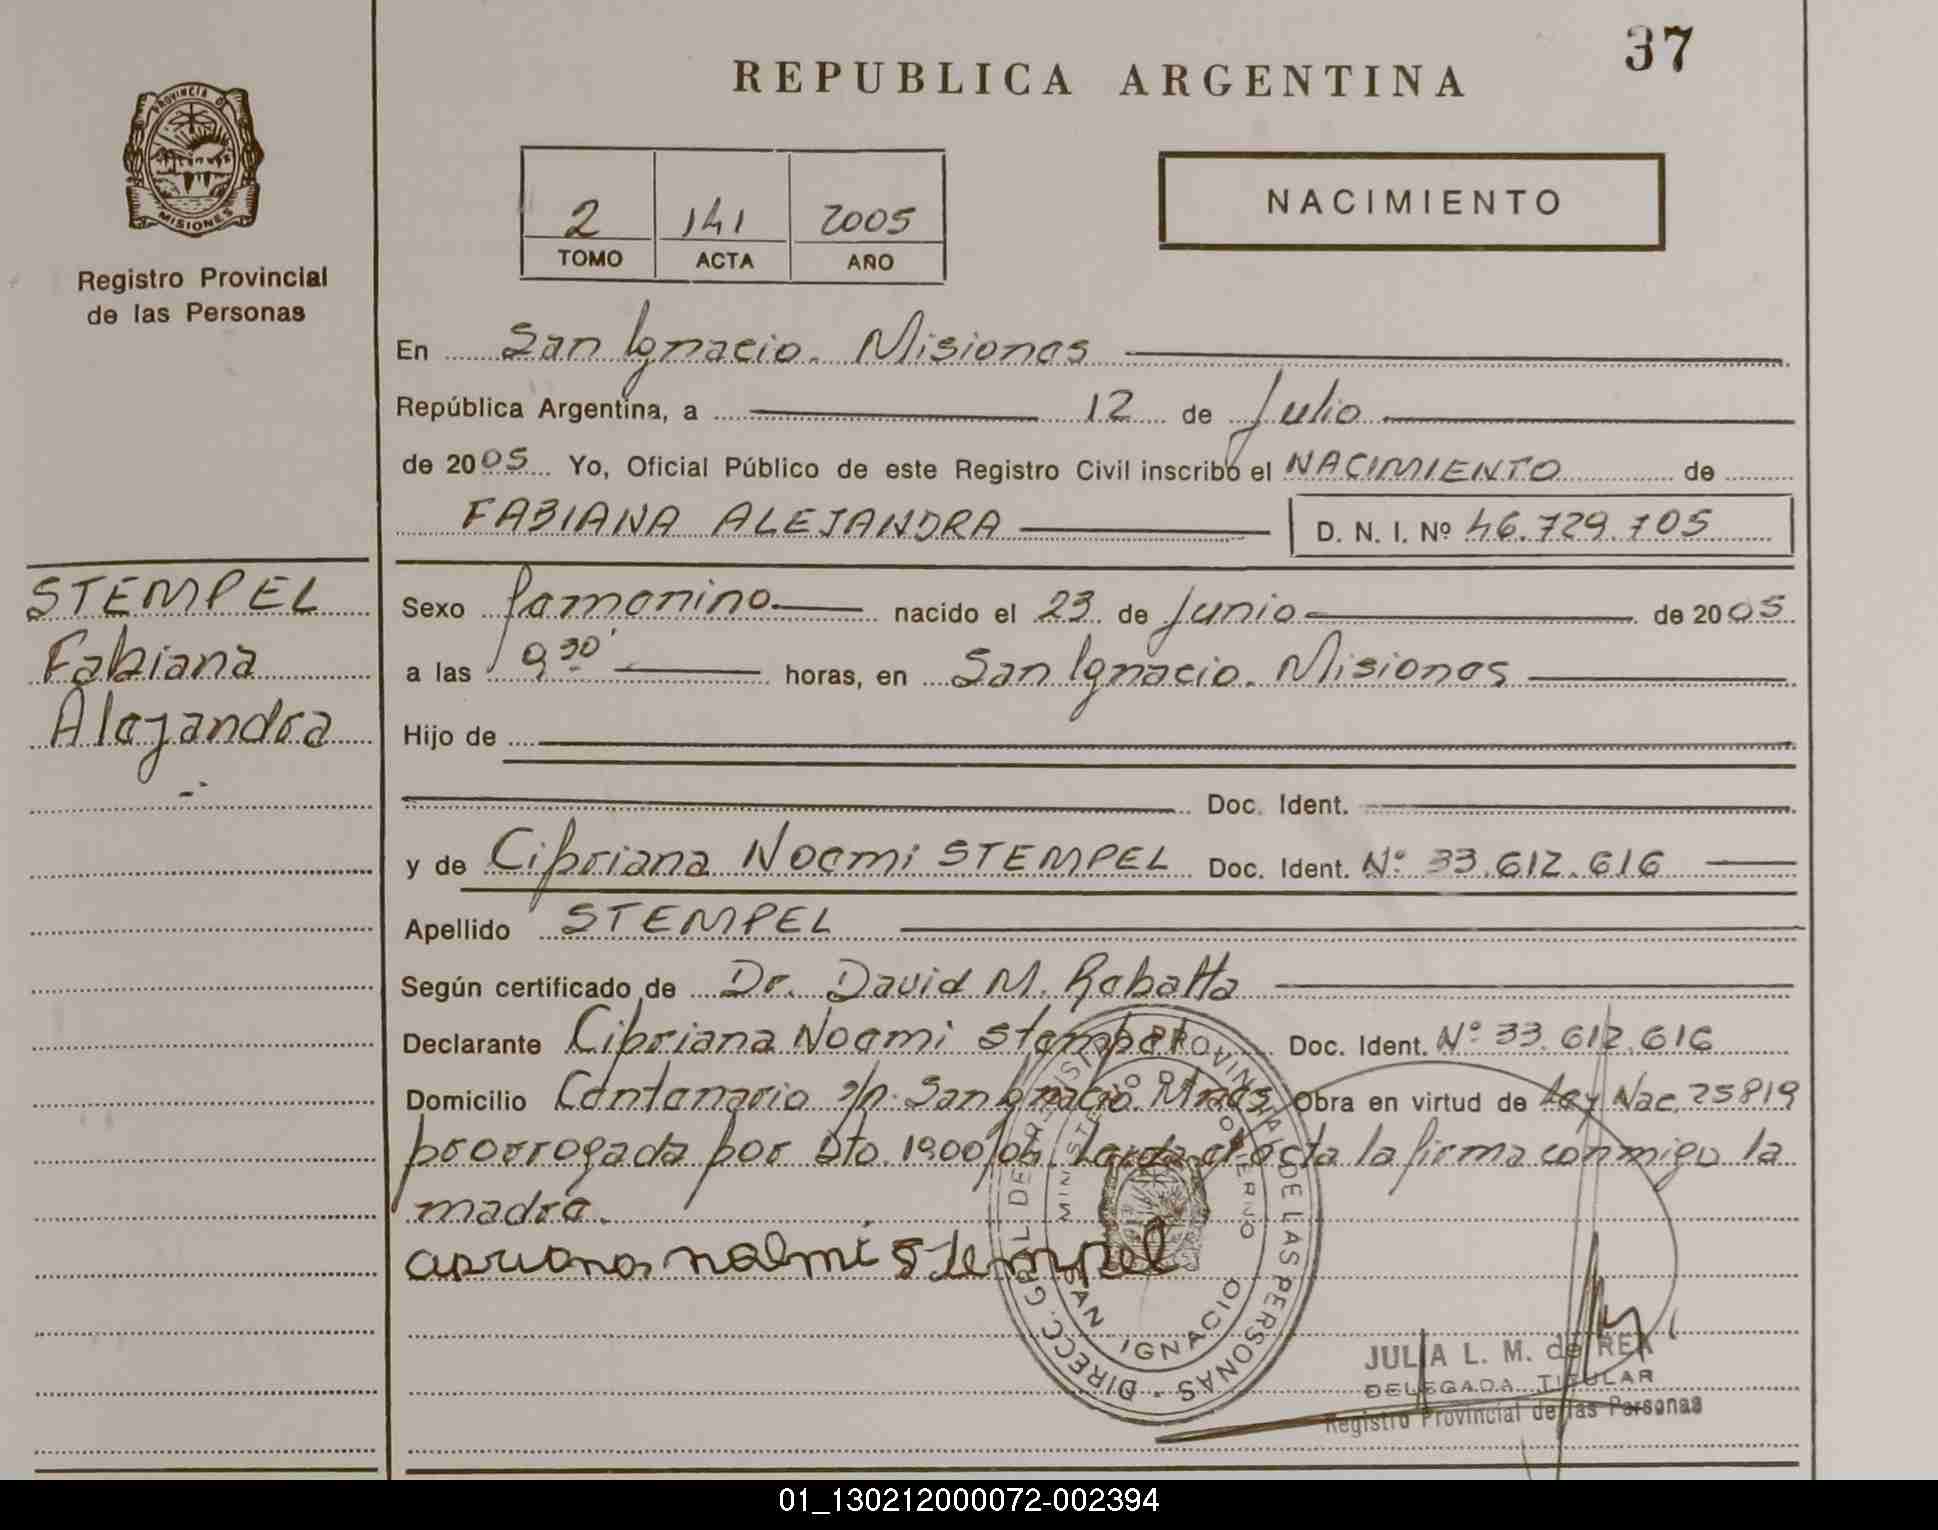 37
REPUBLICA ARGENTINA
PROVINCIA D
MISIONES
Registro Provincial
de las Personas
2 141 2005
TOMO ACTA AÑO
NACIMIENTO
En San Ignacio. Misiones
República Argentina, a 12 de Julio
de 2005 Yo, Oficial Público de este Registro Civil inscribo el NACIMIENTO de
FABIANA ALEJANDRA D. N. I. Nº 46.729.705
STEMPEL
Fabiana
Alejandra
Sexo femenino nacido el 23 de Junio de 2005
a las 9 30' horas, en San Ignacio. Misiones
Hijo de
Doc. Ident.
y de Cipriana Noemi STEMPEL Doc. Ident. Nº 33.612.616
Apellido STEMPEL
Según certificado de Dr. David M. Rabatta
Declarante Cipriana Noemi Stempel Doc. Ident. Nº 33.612.616
Domicilio Centenario s/n. San Ignacio. Mnes Obra en virtud de Ley Nac. 25819
prorrogada por Dto. 1900/04. Leida el acta la firma conmigo la
madre.
cipriana noemi stempel
DIRECC. GRAL DE REGISTRO PROVINCIAL DE LAS PERSONAS
MINISTERIO DE GOBIERNO
SAN IGNACIO
JULIA L. M. de REA
DELEGADA TITULAR
Registro Provincial de las Personas
01_130212000072-002394